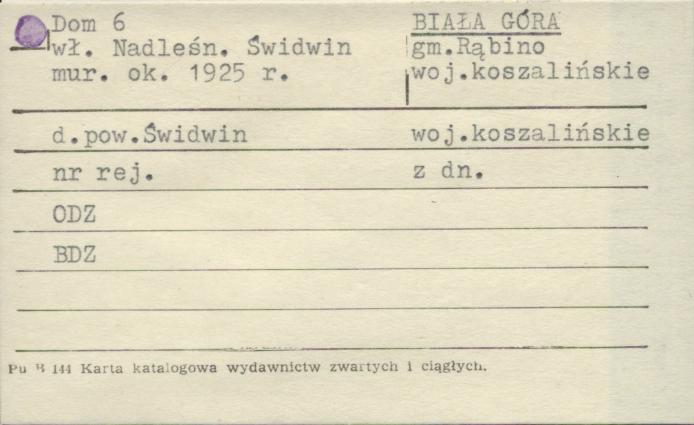 Dom 6
wł. Nadleśn. Świdwin
mur. ok. 1925 r.
BIAŁA GÓRA
gm.Rąbino
woj.koszalińskie
d.pow.Świdwin woj.koszalińskie
nr rej. z dn.
ODZ
BDZ
Pu B 144 Karta katalogowa wydawnictw zwartych i ciągłych.